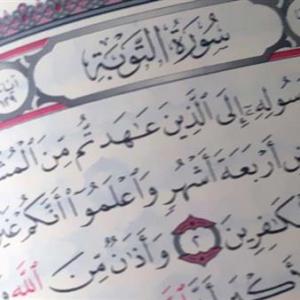 سُورَةُ التَّوْبَةِ
سُولِهِۦٓ إِلَى ٱلَّذِينَ عَـٰهَدتُّم مِّنَ ٱلْمُشْ
أَرْبَعَةَ أَشْهُرٍ وَٱعْلَمُوٓا۟ أَنَّكُمْ غَيْ
ٱلْكَـٰفِرِينَ ٢ وَأَذَٰنٌ مِّنَ ٱللَّهِ وَ